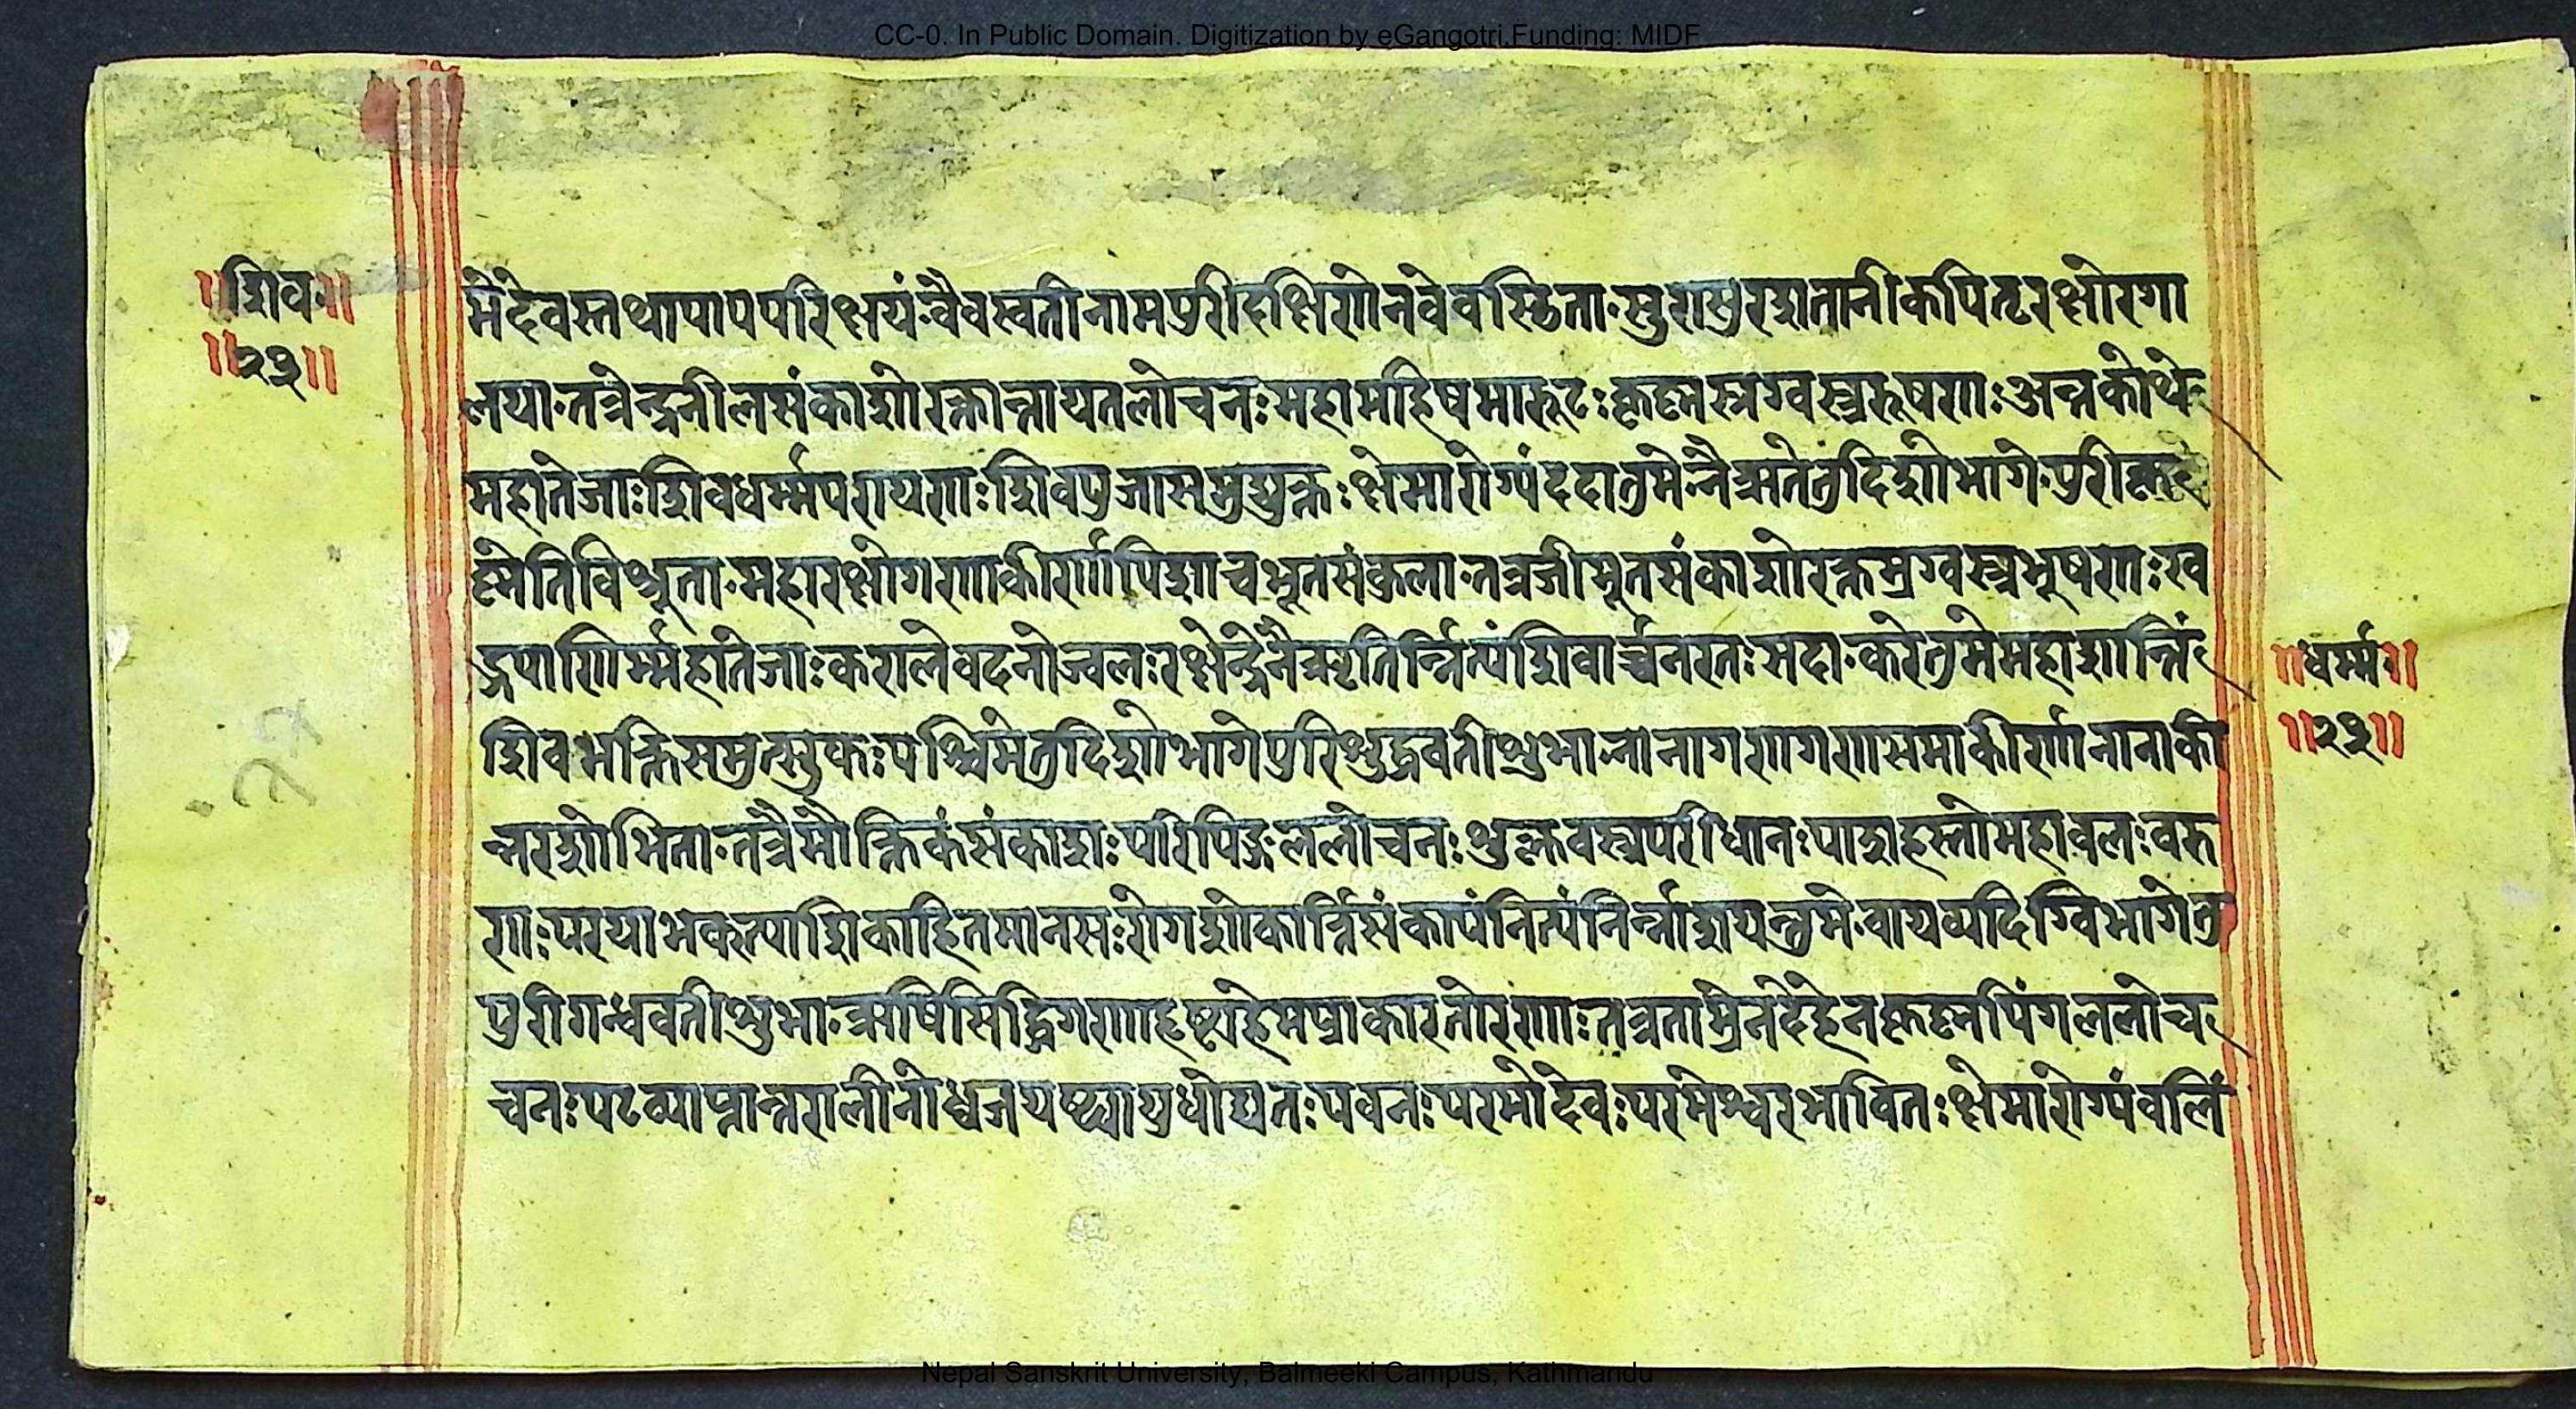 CC-0. In Public Domain. Digitization by eGangotri.Funding: MIDF
॥शिव॥
॥२३॥
मेदेवस्तथापापपरिक्षयं·वैवस्वतीनामपुरीदक्षिणेनवेवस्थिता·सुरासुरशतानीकपितृरक्षोरगा
लया·तत्रेन्द्रनीलसंकाशोरक्तान्तायतलोचनः महामहिषमारूढः कृष्णस्रग्वस्त्रभूषणः अन्तकोथ
महातेजाः शिवधर्म्मपरायणः शिवपूजासमुद्युक्तः क्षेमारोग्यंददातुमे·नैऋतेतुदिशोभागे·पुरीकृ
ष्णेतिविश्रूता·महारक्षोगणाकीर्णापिशाचभूतसंकुला·तत्रजीमूतसंकाशोरक्तस्रग्वस्त्रभूषणः ख
ड्गपाणिर्म्महातेजाः करालेवदनोज्वलः रक्षेन्द्रेनैऋृतिर्न्नित्यंशिवार्च्चनरतः सदा·करेतुमेमहाशान्तिं
शिवभक्तिसमुत्सुकः पश्चिमेतुदिशोभागेपुरिशुद्धवतीशुभा·नानागणगणसमाकीर्णानानाकी
न्नरशोभिता·तत्रैमौक्तिकंसंकाशः परिपिङ्गललोचनः शुक्लवस्त्रपरीधानः पाशहस्तोमहावलः वरु
णः परयाभक्त्याशिकाहितमानसः रोगशोकार्न्निसंकापंनित्यंनिर्न्नाशयन्तुमे·वायव्यदिग्विभागेतु
पुरीगन्धवतीशुभा·ऋषिसिद्धिगणाहृष्टाहेमप्राकारतोरणाः तत्रताम्रेनदेहेनकृष्नपिंगललोच
चनः पटव्याप्तान्तरालीनोध्वजयष्ट्यायुधोद्यतः पवनः परमोदेवः परमेश्वरभावितः क्षेमारोग्यंवलिं
॥धर्म्म॥
॥२३॥
Nepal Sanskrit University, Balmeeki Campus, Kathmandu